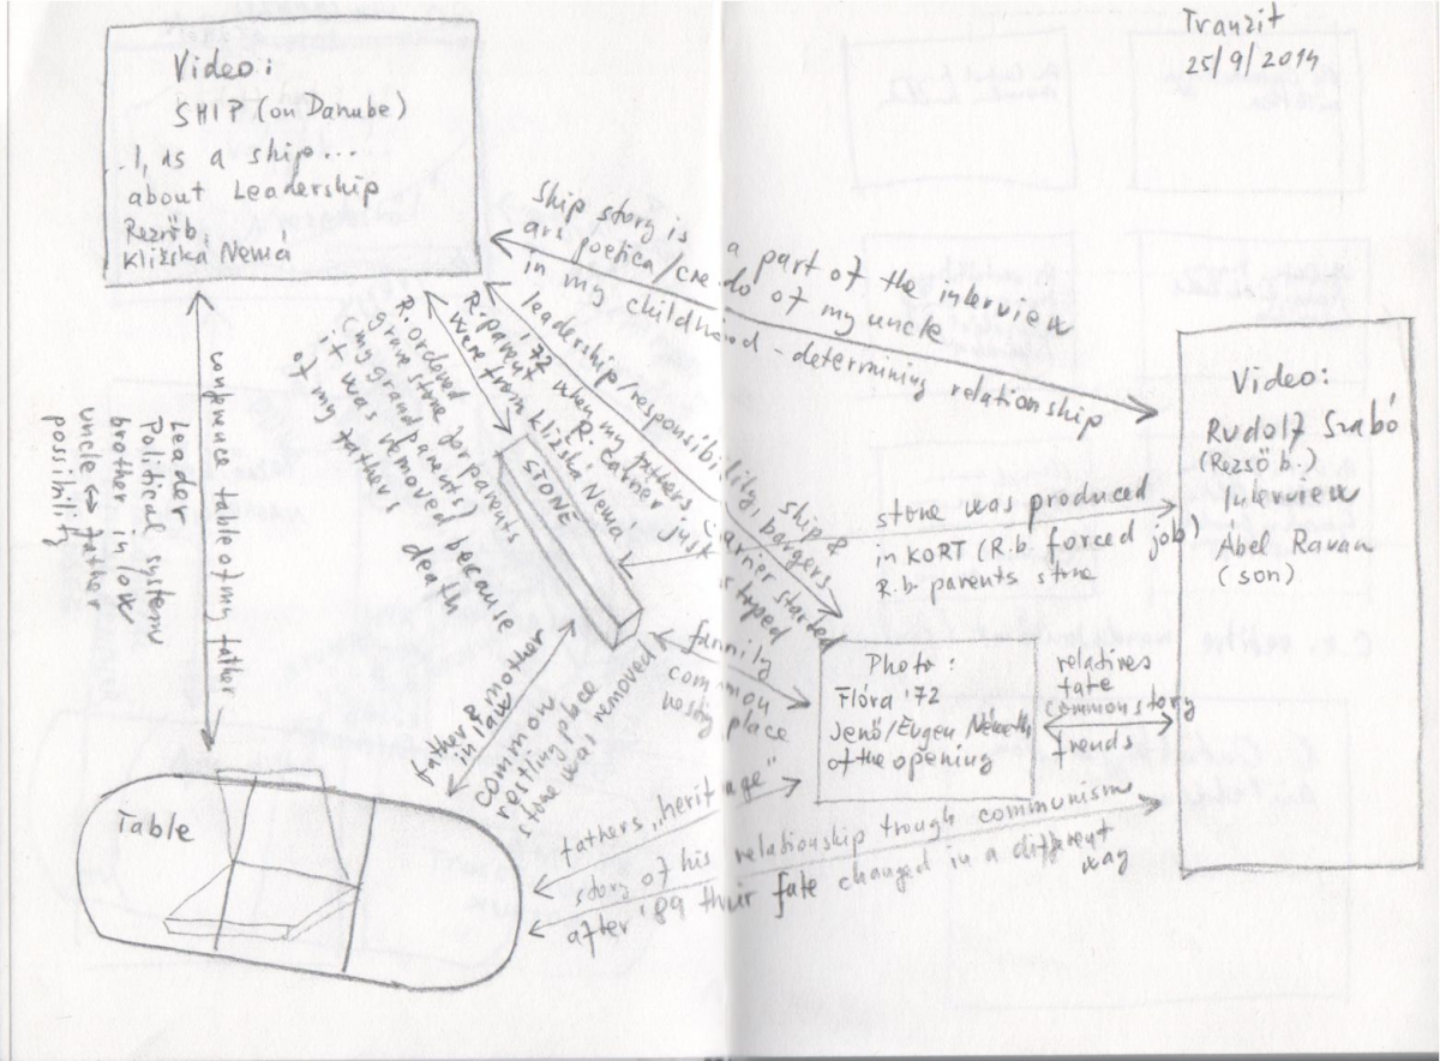 Tranzit
25/9/2014
Video:
SHIP (on Danube)
I, as a ship...
about Leadership
Rezsőb.
Kližská Nemá
Ship story is a part of the interview
ars poetica/credo of my uncle
in my childhood - determining relationship
leadership/responsibility, bargers
ship &
R. parent '72 when my fathers carrier started
were from Kližská Nemá
when R. carrier just stoped
R. ordered
grave stone for parents
(my grand parents)
it was removed because
of my father death
STONE
stone was produced
in KORT (R.b. forced job)
R.b. parents stone
Video:
Rudolf Szabó
(Rezső b.)
Interview
Abel Ravasz
(son)
conference table of my father
Leader
Political system
brother in low
uncle ↔ father
possibility
family
common
resting place
Photo:
Flóra '72
Jenő/Eugen Németh
of the opening
relatives
fate
common story
trends
father & mother
in law
common
restling place
stone was removed
Table
fathers „heritage"
story of his relationship trough communism
after '89 their fate changed in a different
way